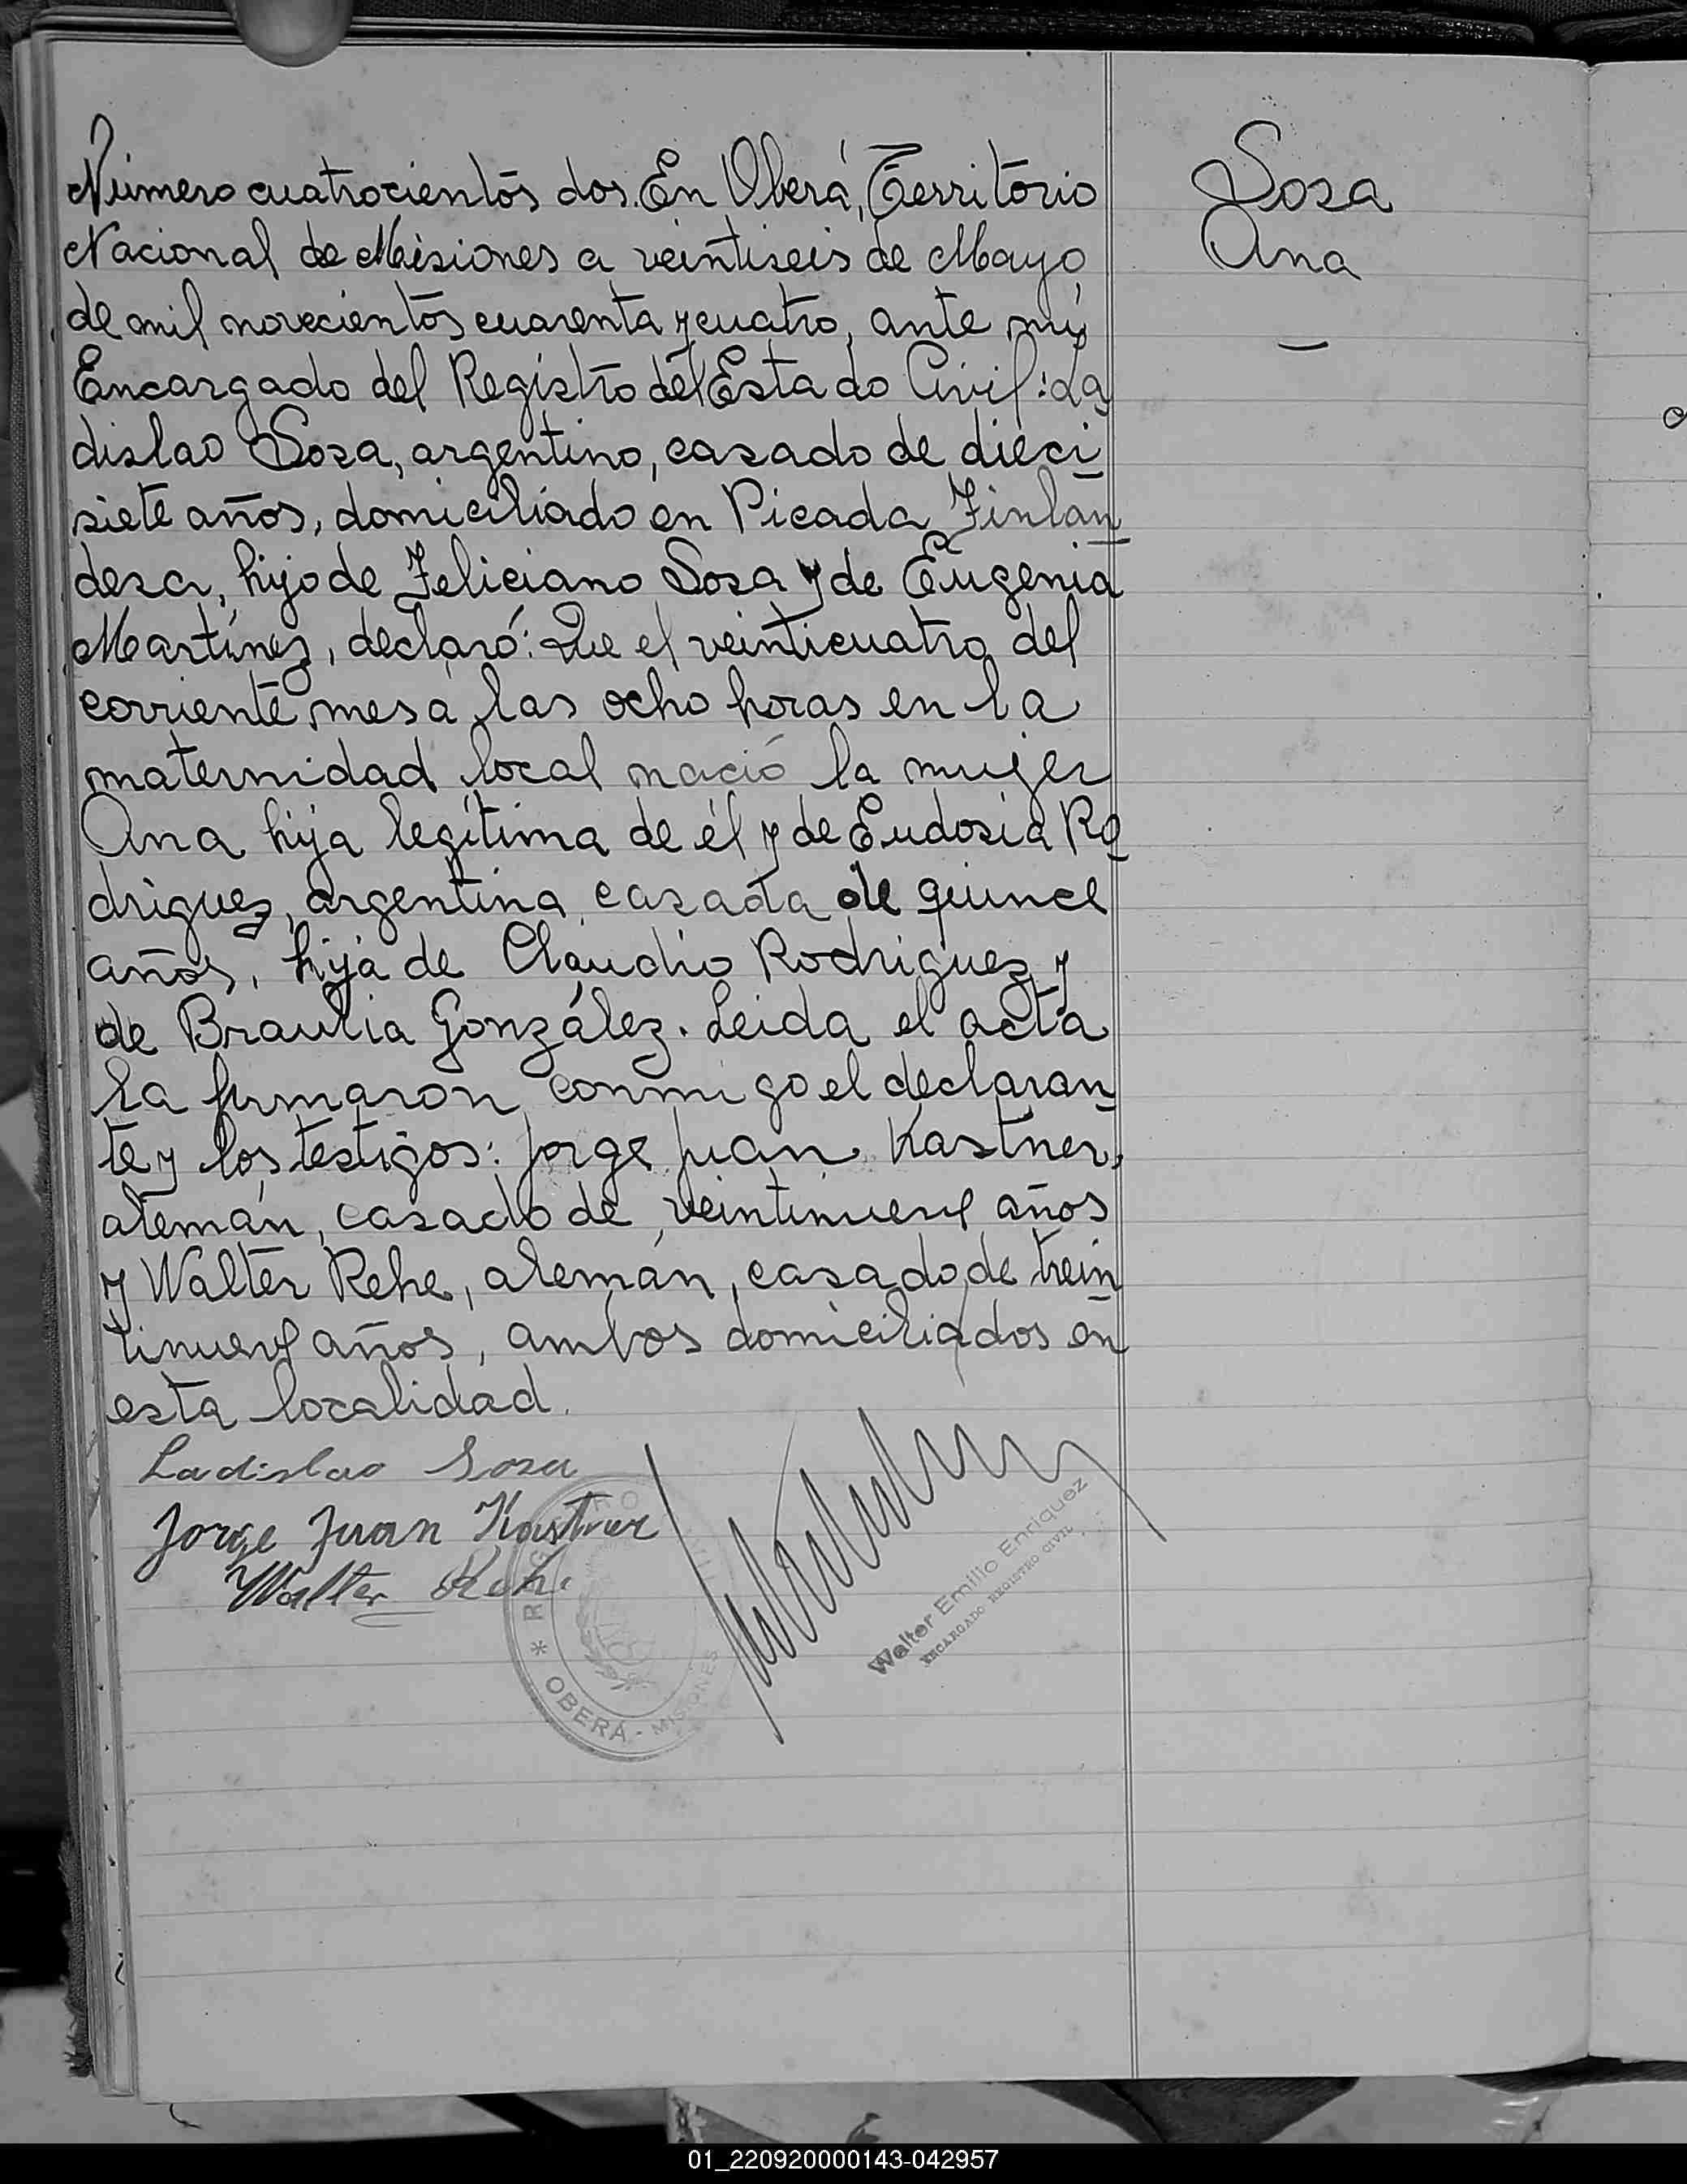 Número cuatrocientos dos. En Oberá, Territorio
Nacional de Misiones a veintiseis de Mayo
de mil novecientos cuarenta y cuatro, ante mí
Encargado del Registro del Estado Civil: La
dislao Sosa, argentino, casado de dieci
siete años, domiciliado en Picada Finlan
desa, hijo de Feliciano Sosa y de Eugenia
Martínez, declaró: Que el veinticuatro del
corriente mes a las ocho horas en la
maternidad local nació la mujer
Ana hija legítima de él y de Eudosia Ro
driguez, argentina, casada de quince
años, hija de Claudio Rodriguez y
de Braulia González. Leida el acta
la firmaron conmigo el declaran
te y los testigos: Jorge Juan Kastner,
alemán, casado de veintinueve años
y Walter Rehe, alemán, casado de trein
tinueve años, ambos domiciliados en
esta localidad.
Sosa
Ana
Ladislao Sosa
Jorge Juan Kastner
Walter Rehe
REGISTRO CIVIL
* OBERÁ - MISIONES
Walter Emilio Enriquez
ENCARGADO REGISTRO CIVIL
01_220920000143-042957